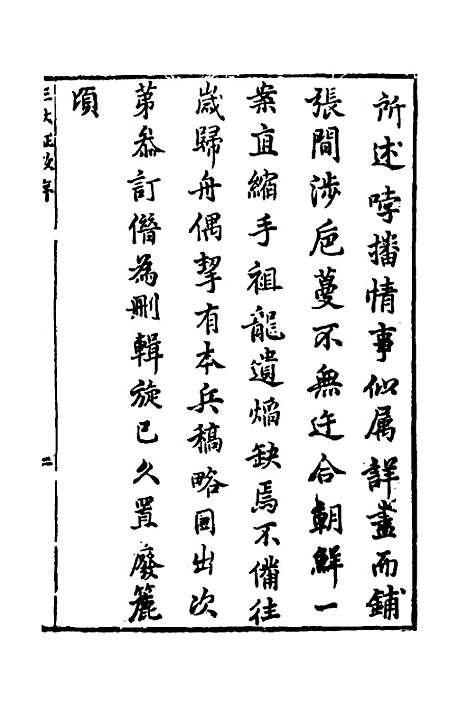 所述哱播情事似属詳盡而鋪
張間涉巵蔓不無迕合朝鮮一
案直縮手祖龍遺熖缺焉不備往
歲歸舟偶挈有本兵稿略因出次
苐叅訂僭為刪輯旋已久置廢簏
頃
三大正攷序
二